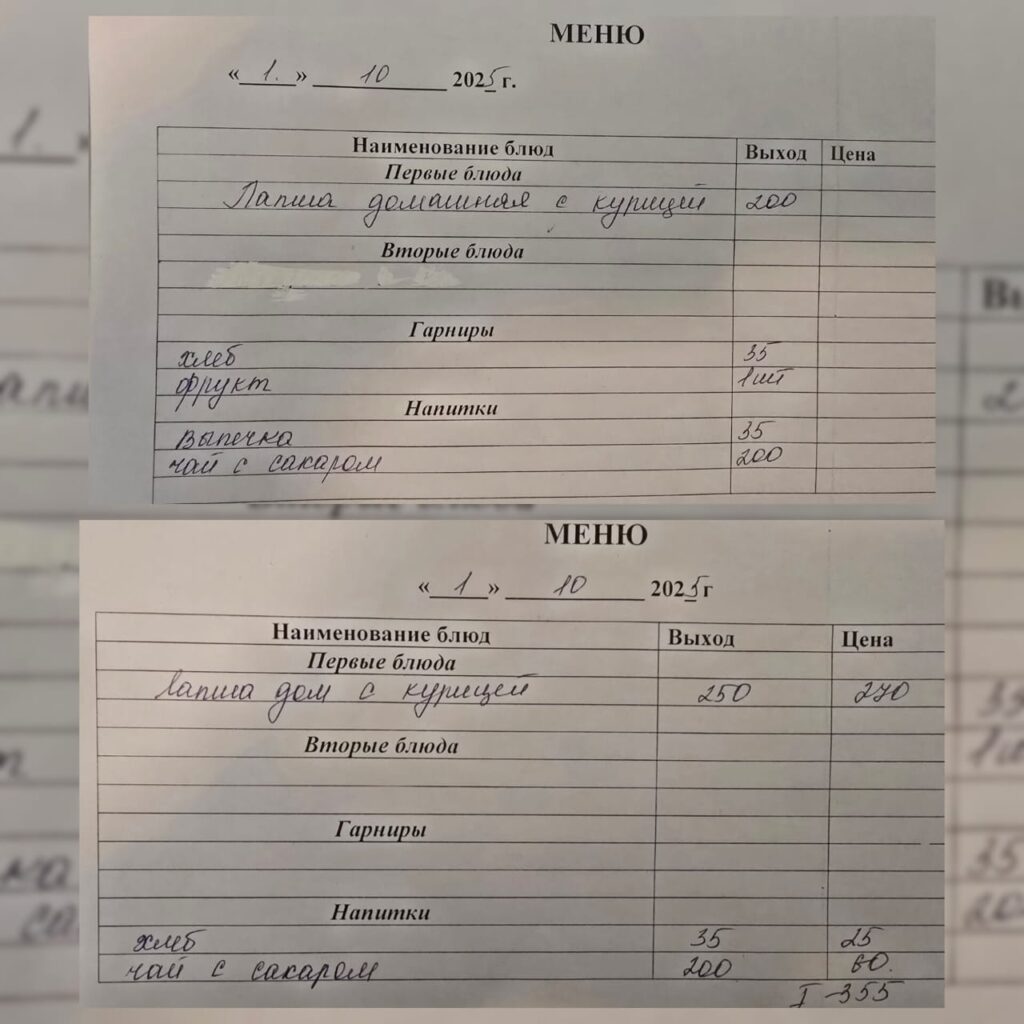 МЕНЮ
«1.» 10 2025 г.
Наименование блюд Выход Цена
Первые блюда
Лапша домашняя с курицей 200
Вторые блюда
Гарниры
хлеб 35
фрукт 1шт
Напитки
выпечка 35
чай с сахаром 200
МЕНЮ
«1» 10 2025 г
Наименование блюд Выход Цена
Первые блюда
Лапша дом с курицей 250 270
Вторые блюда
Гарниры
Напитки
хлеб 35 25
чай с сахаром 200 60.
I -355